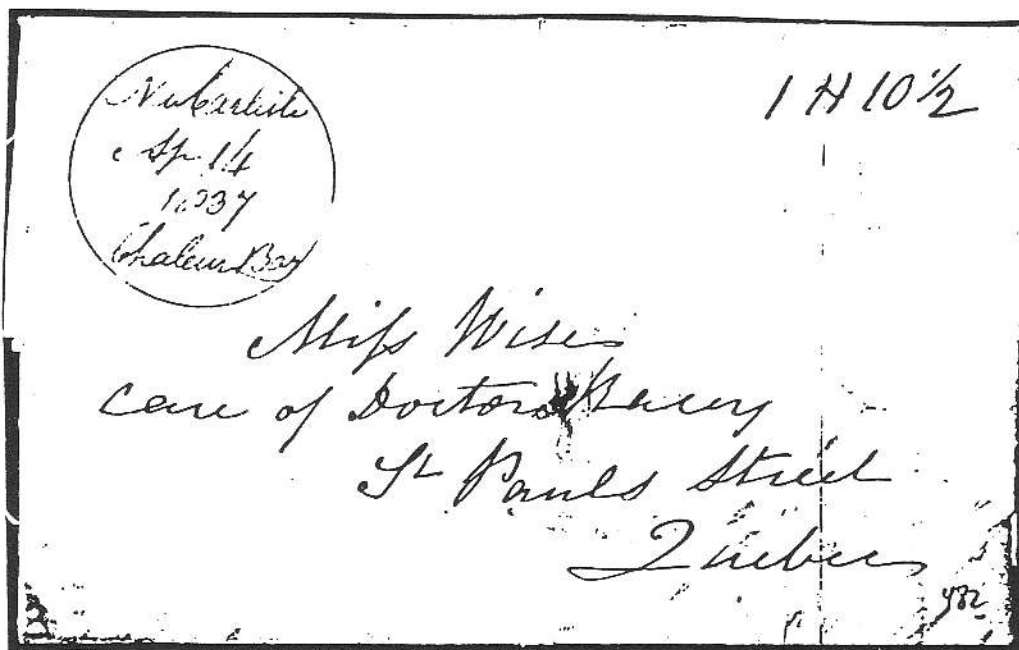 New Carlisle
Ap 14
1837
Chaleur Bay
1 H 10 ½
Miss Wise
care of Doctor Racey
St Pauls Street
Quebec